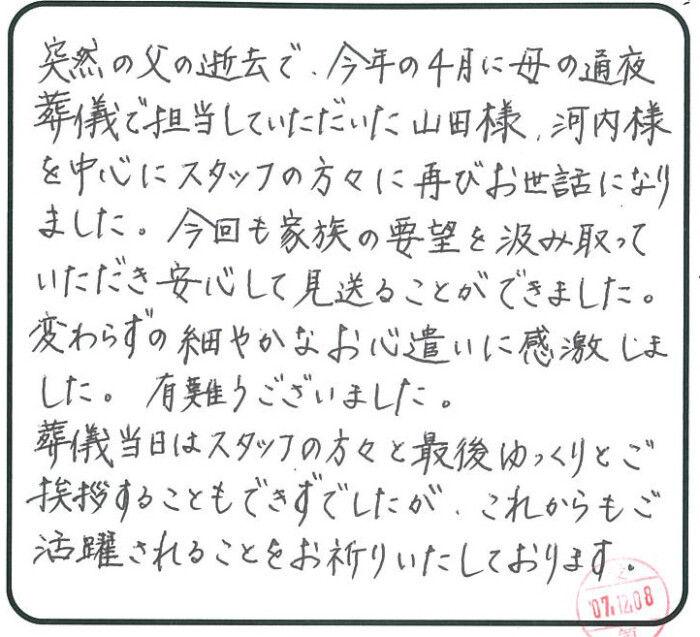 突然の父の逝去で、今年の4月に母の通夜
葬儀で担当していただいた山田様、河内様
を中心にスタッフの方々に再びお世話になり
ました。今回も家族の要望を汲み取って
いただき安心して見送ることができました。
変わらずの細やかなお心遣いに感激しま
した。有難うございました。
葬儀当日はスタッフの方々と最後ゆっくりとご
挨拶することもできずでしたが、これからもご
活躍されることをお祈りいたしております。
'07.12.08